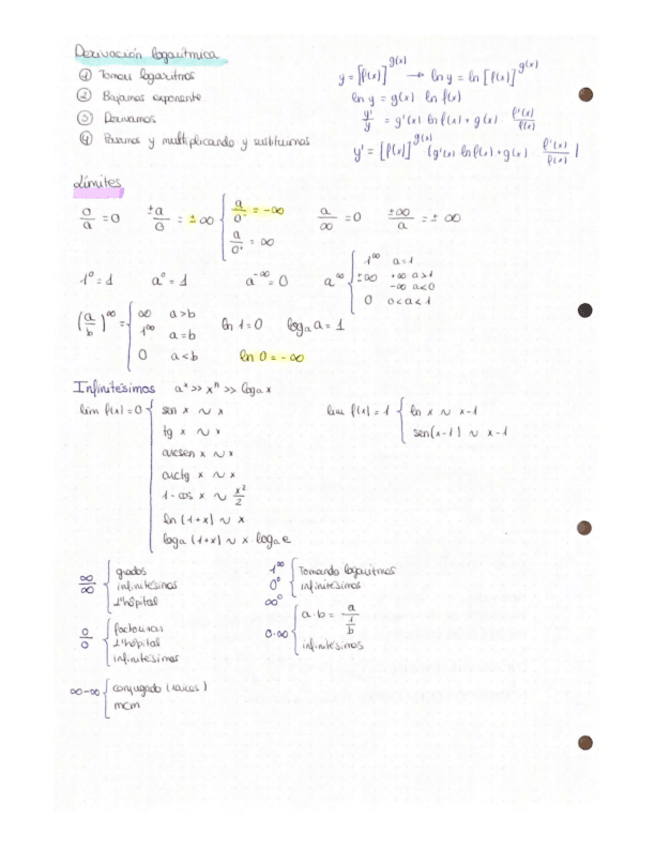 Derivación logarítmica
① Tomar logaritmos
② Bajamos exponente
③ Derivamos
④ Pasamos y multiplicando y sustituimos
y = [f(x)]^g(x) → ln y = ln [f(x)]^g(x)
ln y = g(x) ln f(x)
y'/y = g'(x) ln f(x) + g(x) · f'(x)/f(x)
y' = [f(x)]^g(x) (g'(x) ln f(x) + g(x) · f'(x)/f(x))
Límites
0/a = 0 ±a/0 = ±∞ { a/0⁻ = -∞ a/∞ = 0 ±∞/a = ±∞
a/0⁺ = ∞
1⁰ = 1 a⁰ = 1 a^-∞ = 0 a^∞ { 1^∞ a=1
±∞ +∞ a>1
-∞ a<0
0 0<a<1
(a/b)^∞ = { ∞ a>b
1^∞ a=b
0 a<b
ln 1 = 0 logₐ a = 1
ln 0 = -∞
Infinitésimos aˣ >> xⁿ >> logₐ x
lim f(x) = 0 { sen x ~ x
tg x ~ x
arcsen x ~ x
arctg x ~ x
1 - cos x ~ x²/2
ln (1+x) ~ x
logₐ (1+x) ~ x logₐ e
lim f(x) = 1 { ln x ~ x-1
sen(x-1) ~ x-1
∞/∞ { grados
infinitésimos
L'hôpital
0/0 { factorizar
L'hôpital
infinitésimos
∞-∞ { conjugado (raíces)
mcm
1^∞ 0⁰ ∞⁰ { Tomando logaritmos
infinitésimos
0·∞ { a·b = a/(1/b)
infinitésimos